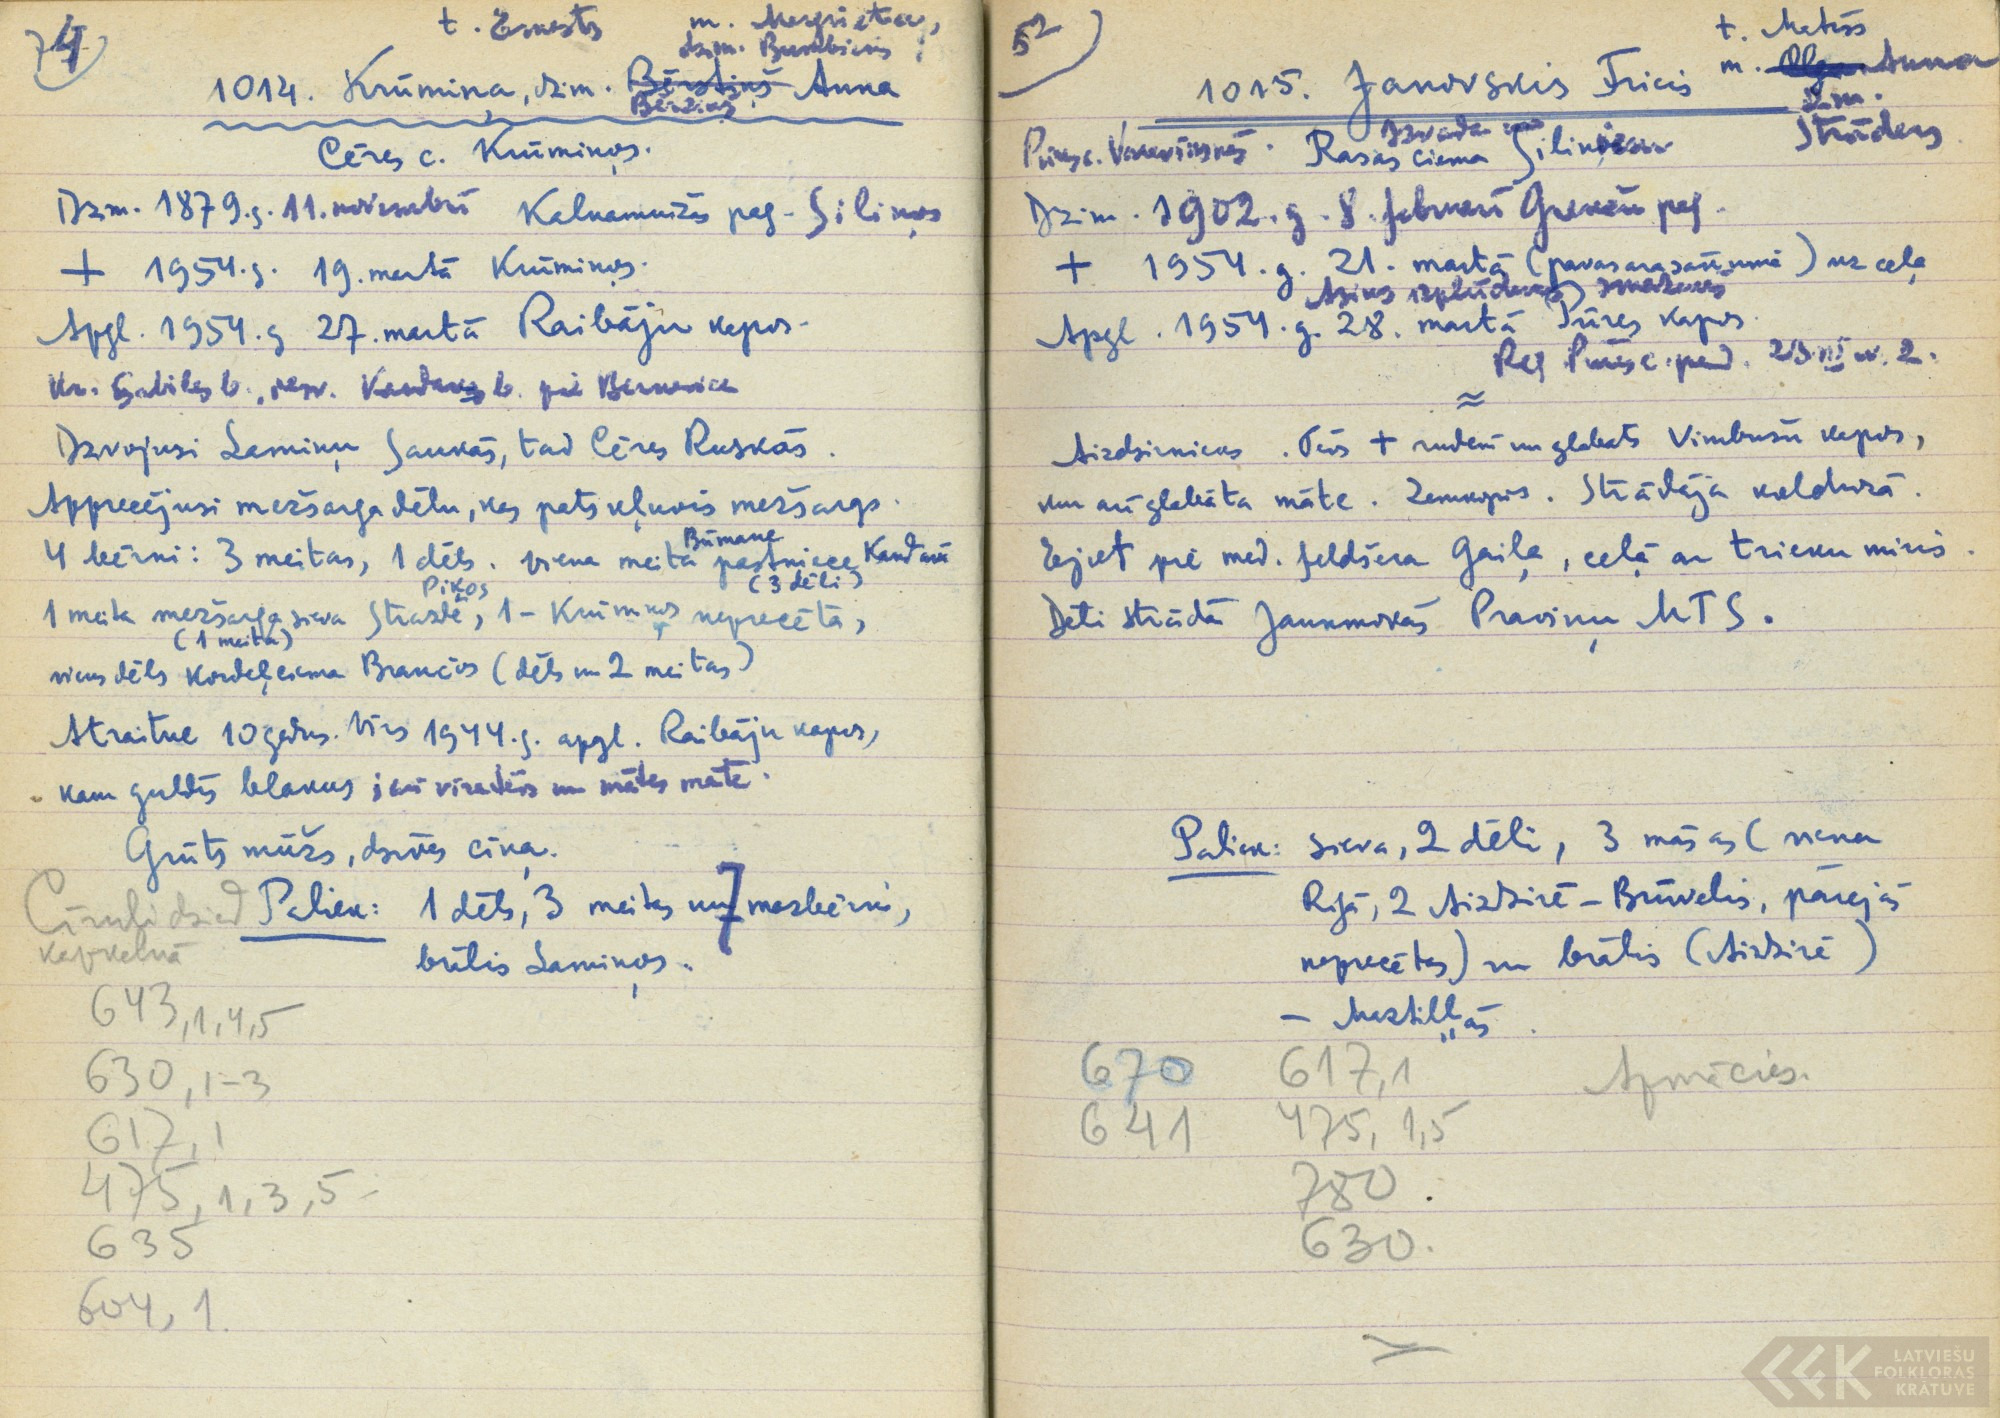 74
t. Ernests m. Margrietas,
dzim.
1014. Krūmiņa, dzim. Bērziņš Anna
Bērziņš
Cēres c. Krūmiņos.
Dzim. 1879.g. 11. novembrī Kalnamuižas pag. Siliņos
+ 1954.g. 19. martā Krūmiņos.
Apgl. 1954.g 27. martā Raibāju kapos.
Kr. Sabiles b., Kandavas b. pie
Dzīvojusi Lamiņu Saukās, tad Cēres Ruskās.
Apprecējusi mežsarga dēlu, kas pats kļuvis mežsargs.
4 bērni: 3 meitas, 1 dēls. viena meita Būmane pastniece Kandavā
(3 dēli)
1 meita mežsarga sieva Strazdē, Piķos 1 – Krūmiņos neprecēta,
(1 meita)
viens dēls Kordeļciema Brančos (dēls un 2 meitas)
Atraitne 10 gadus. Vīrs 1944.g. apgl. Raibāju kapos,
kam guldīs blakus jau vīratēvs un mātes māte.
Grūts mūžs, dzīves cīņa.
Cīruļi dzied
kapkalnā
Paliek: 1 dēls, 3 meitas un 7 mazbērni,
brālis Lamiņos.
643,1,4,5
630,1-3
617,1
475,1,3,5
635
604,1.
52
t. Matīss
m. Anna
dzim.
Strāders
1015. Janovskis Fricis
Pūres c. Rasas ciema Siliņos
Dzim. 1902.g. 8. februārī Grenču pag.
+ 1954.g. 21. martā (pavasara sākumā) uz ceļa
Asins izplūdums smadzenēs
Apgl. 1954.g. 28. martā Pūres kapos.
Reģ Pūres c. pad. 23 III nr. 2.
≈
Aizdzirnieks. Tēvs + rudenī un glabāts Vimbušu kapos,
kur arī glabāta māte. Zemkopis. Strādāja kolchozā.
Ejot pie med. feldšera Gaiļa, ceļā ar trieku miris.
Dēli strādā Jaunmokās Praviņu MTS.
Paliek: sieva, 2 dēli, 3 māsas (viena
Rīgā, 2 Aizdzirē – Brūvelis, pārējās
neprecētas) un brālis (Aizdzirē)
–
670 617,1 Apmācies.
641 475, 1,5
780.
630.
LATVIEŠU
FOLKLORAS
KRĀTUVE